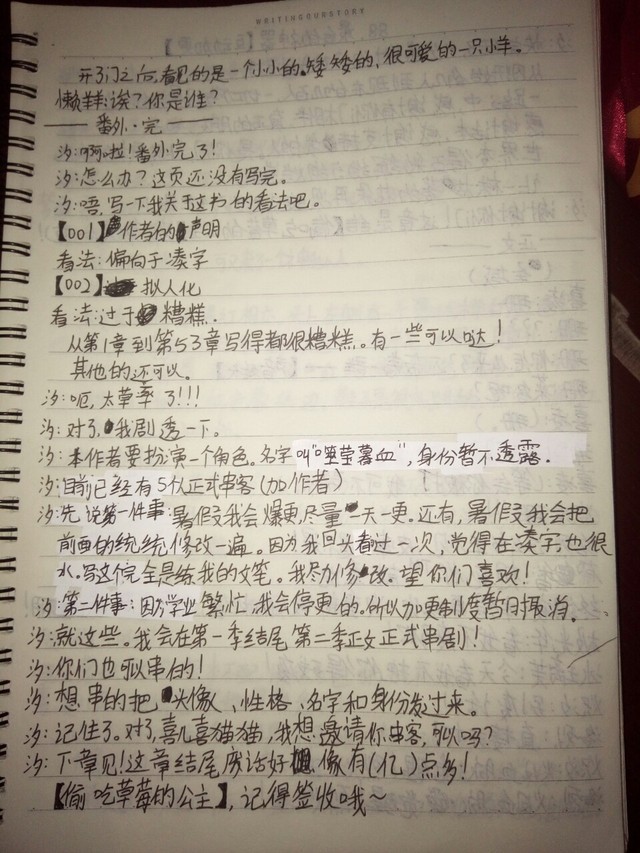 WRITINGOURSTORY
开了门之后,看见的是一个小小的。矮矮的、很可爱的一只小羊。
懒羊羊:诶?你是谁?
—— 番外·完 ——
汐:啊啦!番外完了!
汐:怎么办?这页还没有写完。
汐:唔,写一下我关于这书的看法吧。
【001】作者的声明
看法:偏向于凑字
【002】拟人化
看法:过于糟糕.
从第1章到第53章写得都很糟糕。有一些可以哒!
其他的还可以.
汐:呃,太草率了!!!
汐:对了,我剧透一下。
汐:本作者要扮演一个角色。名字叫“莹薯血”,身份暂不透露.
汐:目前已经有5位正式串客(加作者)
汐:先说第一件事:暑假我会爆更,尽量一天一更。还有,暑假我会把
前面的统统修改一遍。因为我回头看过一次,觉得在凑字,也很
水。写这个完全是练我的文笔。我尽力修改.望你们喜欢!
汐:第二件事:因为学业繁忙,我会停更的。所以加更制度暂时取消.
汐:就这些。我会在第一季结尾第二季正文正式串剧!
汐:你们也可以串的!
汐:想串的把头像、性格、名字和身份发过来。
汐:记住了。对了,喜儿喜猫猫,我想邀请你串客,可以吗?
汐:下章见!这章结尾废话好想像有(亿)点多!
【偷吃草莓的公主】,记得签收哦~